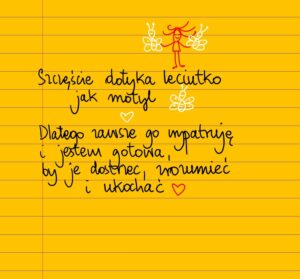 Szczęście dotyka leciutko
jak motyl
Dlatego zawsze go wypatruję
i jestem gotowa,
by je dostrzec, zrozumieć
i ukochać